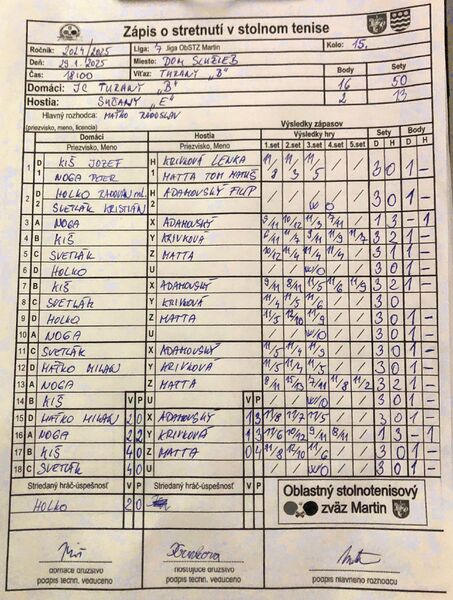 Zápis o stretnutí v stolnom tenise
Ročník: 2024/2025 Liga: 7 Jiga ObSTZ Martin Kolo: 15.
Deň: 29.1.2025 Miesto: DOM SLUŽIEB
Čas: 18:00 Víťaz: TURANY "B" Body Sety
Domáci: JC TURANY "B" 16 50
Hostia: SUČANY "E" 2 13
Hlavný rozhodca: MAŤKO RADOSLAV
(priezvisko, meno, licencia)
Domáci Hostia Výsledky zápasov Sety Body
Priezvisko, Meno Priezvisko, Meno Výsledky hry
1.set 2.set 3.set 4.set 5.set D H D H
1 D1 KIŠ JOZEF H1 KRIVKOVÁ LENKA 11/8 11/3 11/5 / / 3 0 1 -
NOGA PETER MATTA TOM MATÚŠ
2 D2 HOLKO RADOVAN ml. H2 ADAMOVSKÝ FILIP / / W/O / / 3 0 1 -
SVETLÁK KRISTIÁN
3 A NOGA X ADAMOVSKÝ 1 3 - 1
4 B KIŠ Y KRIVKOVÁ 3 2 1 -
5 C SVETLÁK Z MATTA 3 1 1 -
6 D HOLKO U / / W/O / / 3 0 1 -
7 B KIŠ X ADAMOVSKÝ 9/11 8/11 11/5 11/6 11/9 3 2 1 -
8 C SVETLÁK Y KRIVKOVÁ 11/4 11/5 11/6 / / 3 0
9 D HOLKO Z MATTA 11/5 12/10 11/9 / / 3 0 1 -
10 A NOGA U / / W/O / / 3 0 1 -
11 C SVETLÁK X ADAMOVSKÝ 11/5 11/4 11/9 / / 3 0 1 -
12 D MAŤKO MILAN Y KRIVKOVÁ 3 0 1 -
13 A NOGA Z MATTA 8/11 13/15 11/2 3 2 1 -
14 B KIŠ V P U V P / / W/O / / 3 0 1 -
15 D MAŤKO MILAN 2 0 X ADAMOVSKÝ 1 3 11/8 11/7 11/5 / / 3 0 1 -
16 A NOGA 2 2 Y KRIVKOVÁ 1 3 11/6 10/12 9/11 8/11 / 1 3 - 1
17 B KIŠ 4 0 Z MATTA 0 4 11/8 12/10 11/6 / / 3 0 1 -
18 C SVETLÁK 4 0 U / / W/O / / 3 0 1 -
Striedaný hráč-úspešnosť V P Striedaný hráč-úspešnosť V P
HOLKO 2 0
Oblastný stolnotenisový
zväz Martin
domáce družstvo hosťujúce družstvo
podpis techn. vedúceho podpis techn. vedúceho podpis hlavného rozhodcu